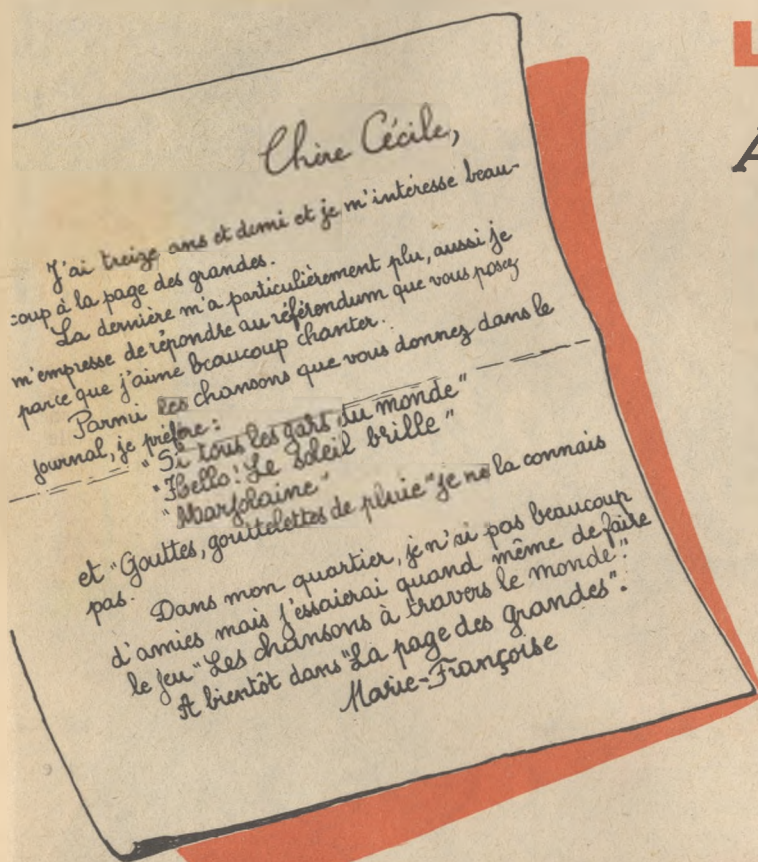 Chère Cécile,
J'ai treize ans et demi et je m'intéresse beau-
coup à la page des grandes.
La dernière m'a particulièrement plu, aussi je
m'empresse de répondre au référendum que vous posez
parce que j'aime beaucoup chanter.
Parmi les chansons que vous donnez dans le
journal, je préfère :
"Si tous les gars du monde"
"Hello ! Le soleil brille"
"Marjolaine"
et "Gouttes, gouttelettes de pluie" je ne la connais
pas.
Dans mon quartier, je n'ai pas beaucoup
d'amies mais j'essaierai quand même de faire
le jeu "Les chansons à travers le monde".
A bientôt dans "La page des grandes".
Marie-Françoise